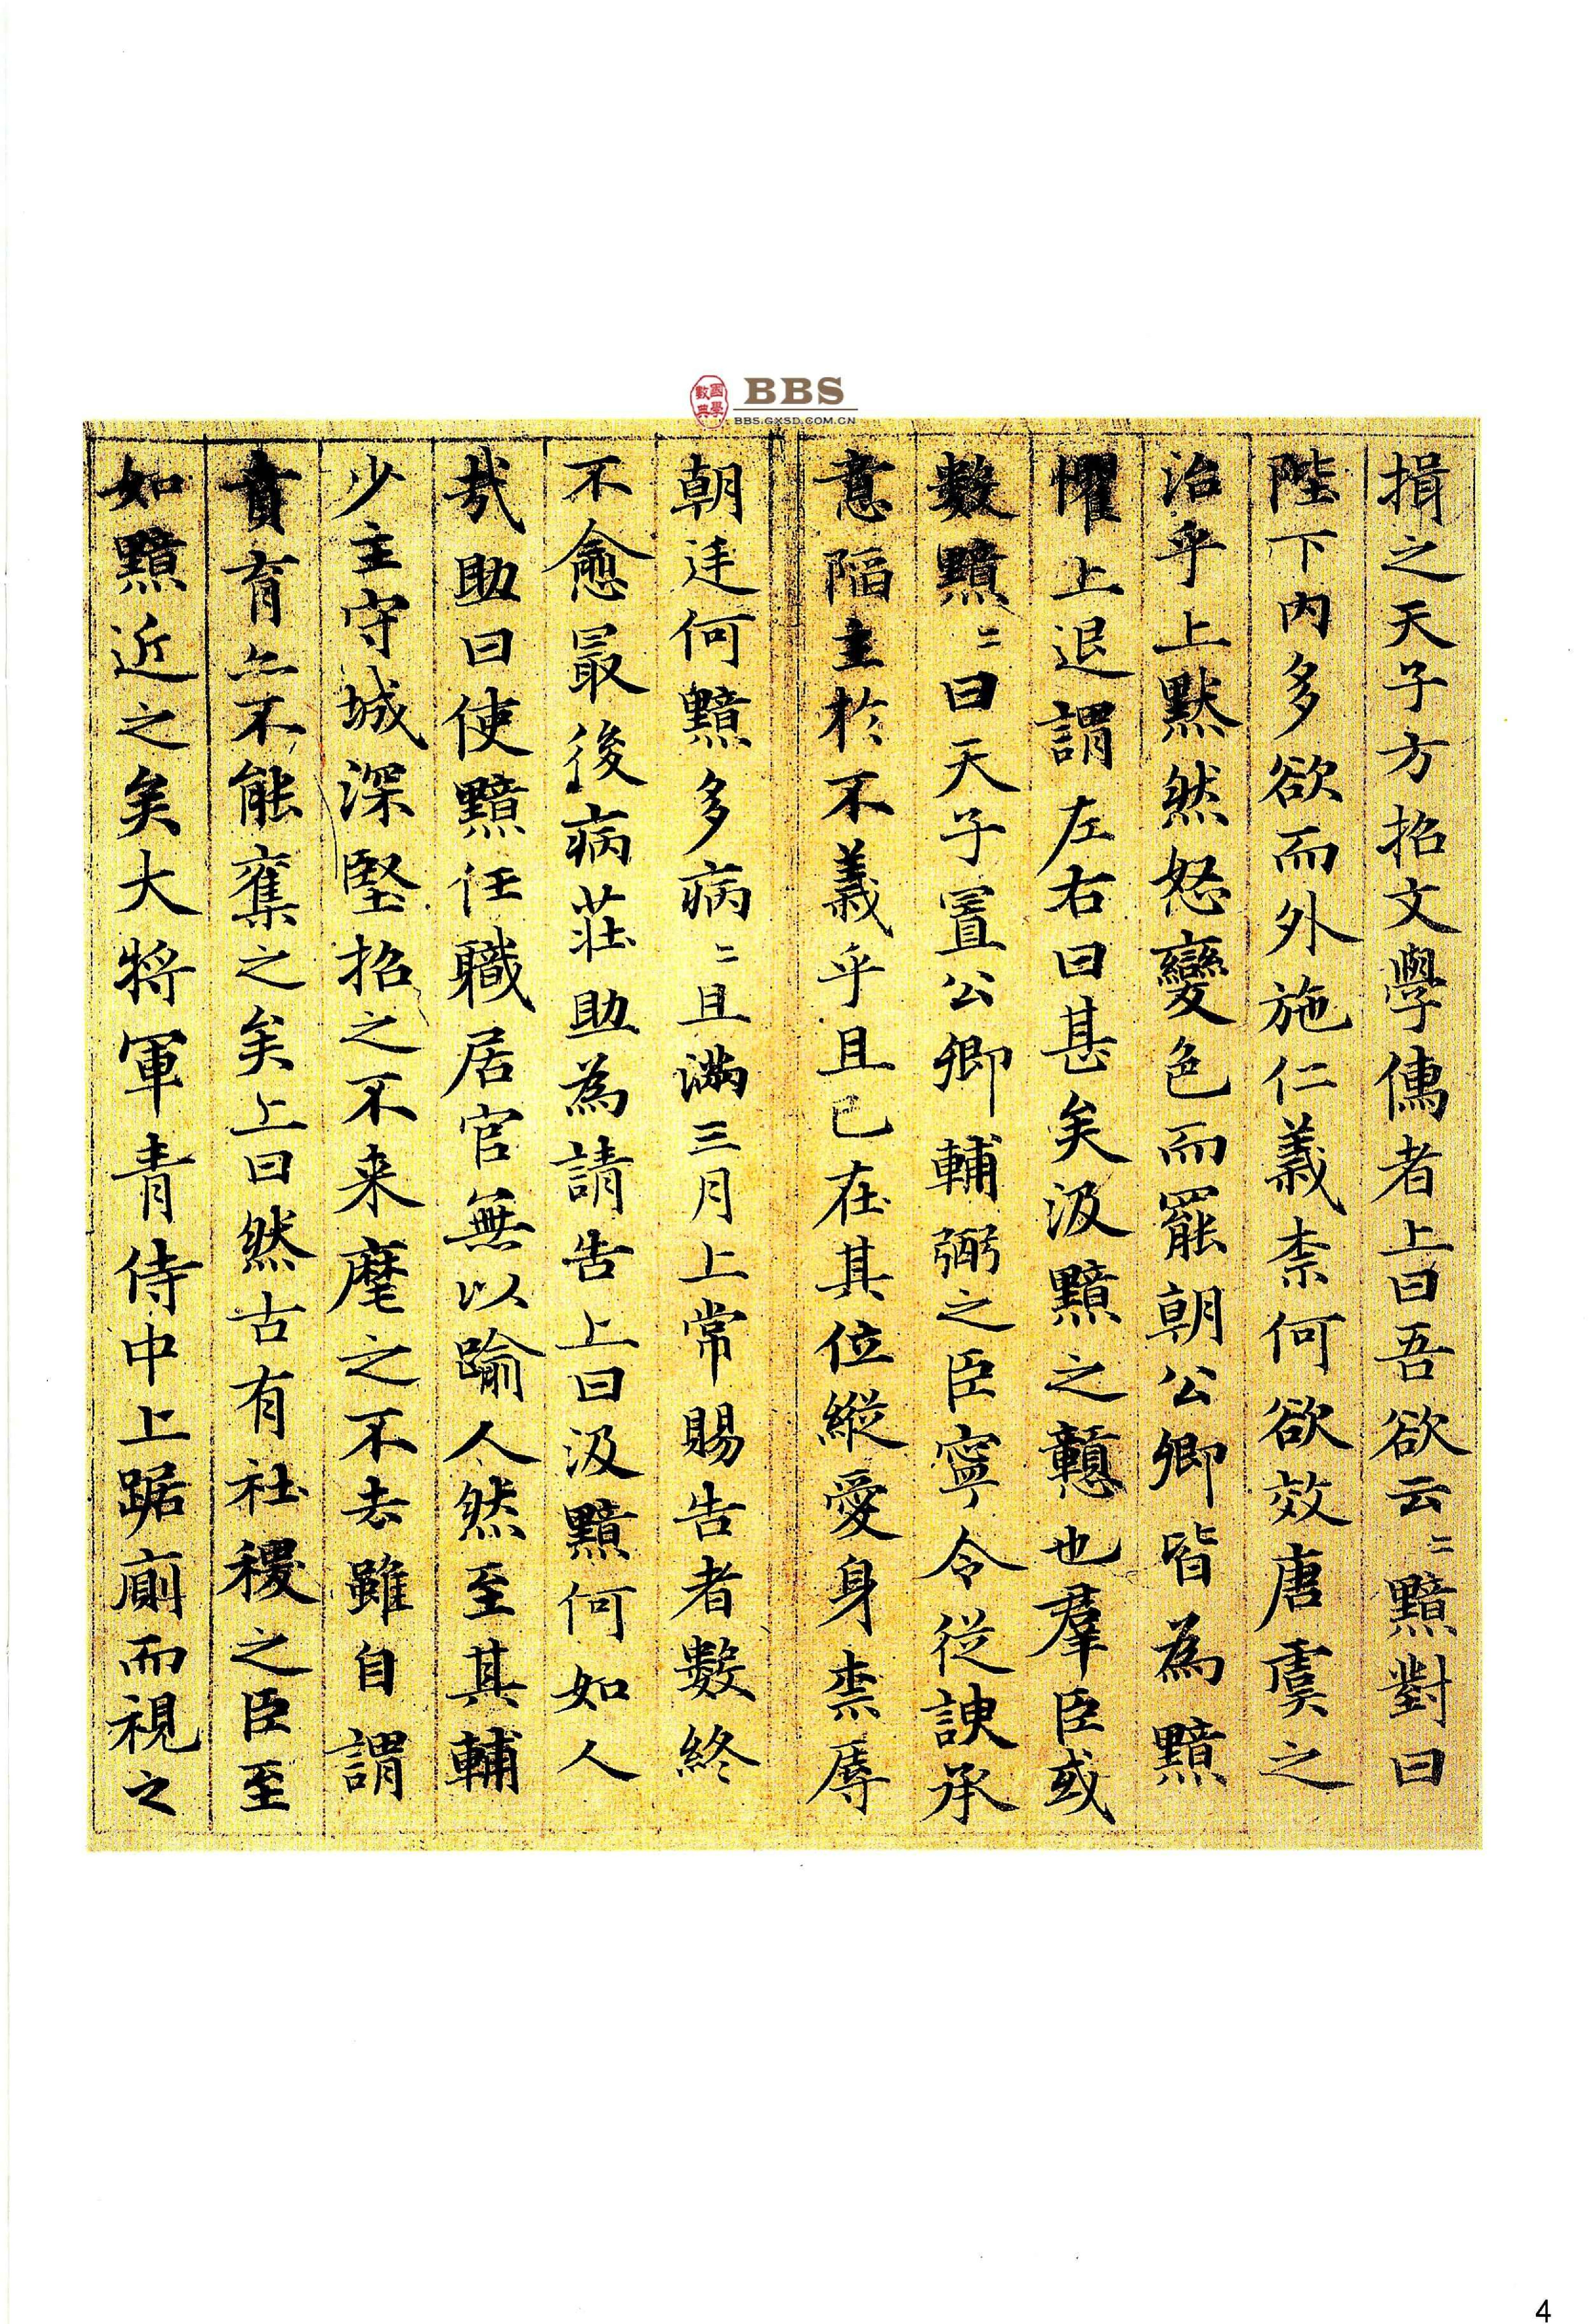 國學數典
BBS
BBS.GXSD.COM.CN
揖之天子方招文學儒者上曰吾欲云〻黯對曰
陛下内多欲而外施仁義柰何欲效唐虞之
治乎上黙然怒變色而罷朝公卿皆為黯
懼上退謂左右曰甚矣汲黯之戇也羣臣或
數黯〻曰天子置公卿輔弼之臣寧令從諛承
意陷主於不義乎且已在其位縱愛身柰辱
朝廷何黯多病〻且滿三月上常賜告者數終
不愈最後病莊助為請告上曰汲黯何如人
㦲助曰使黯任職居官無以踰人然至其輔
少主守城深堅招之不来麾之不去雖自謂
賁育亦不能奪之矣上曰然古有社稷之臣至
如黯近之矣大將軍青侍中上踞廁而視之
4